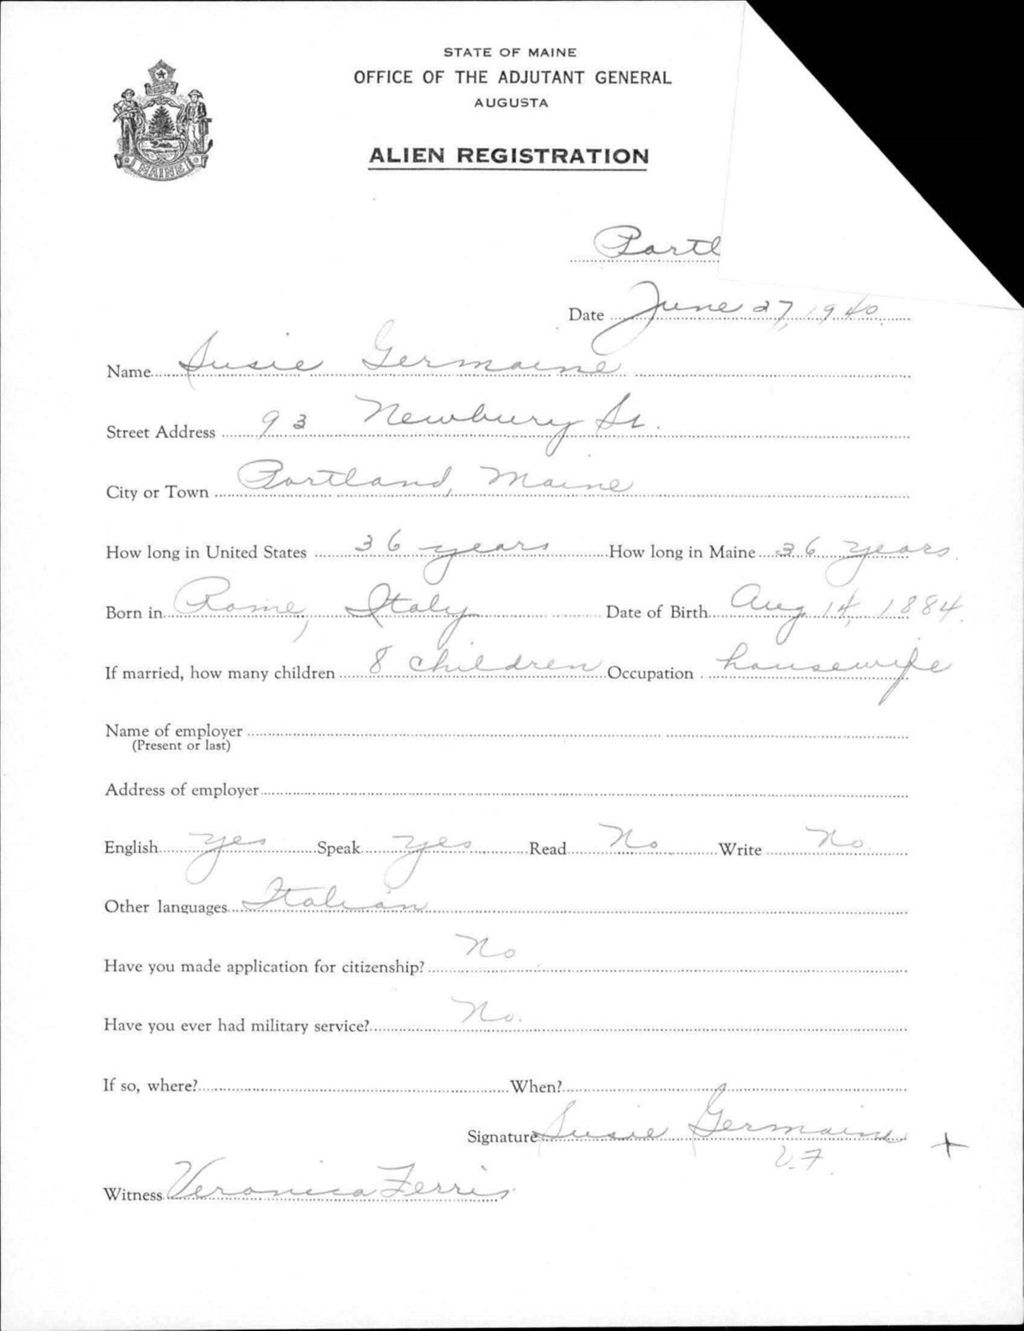 STATE OF MAINE
OFFICE OF THE ADJUTANT GENERAL
AUGUSTA
ALIEN REGISTRATION
MAINE
Portl
Date June 27, 1940
Name Susie Germaine
Street Address 93 Newbury St.
City or Town Portland, Maine
How long in United States 36 years How long in Maine 36 years.
Born in Rome, Italy Date of Birth Aug 14, 1884.
If married, how many children 8 children Occupation housewife
Name of employer
(Present or last)
Address of employer
English yes Speak yes Read No Write No.
Other languages Italian
Have you made application for citizenship? No
Have you ever had military service? No.
If so, where? When?
Signature Susie Germaine +
V.F.
Witness Veronica Ferris